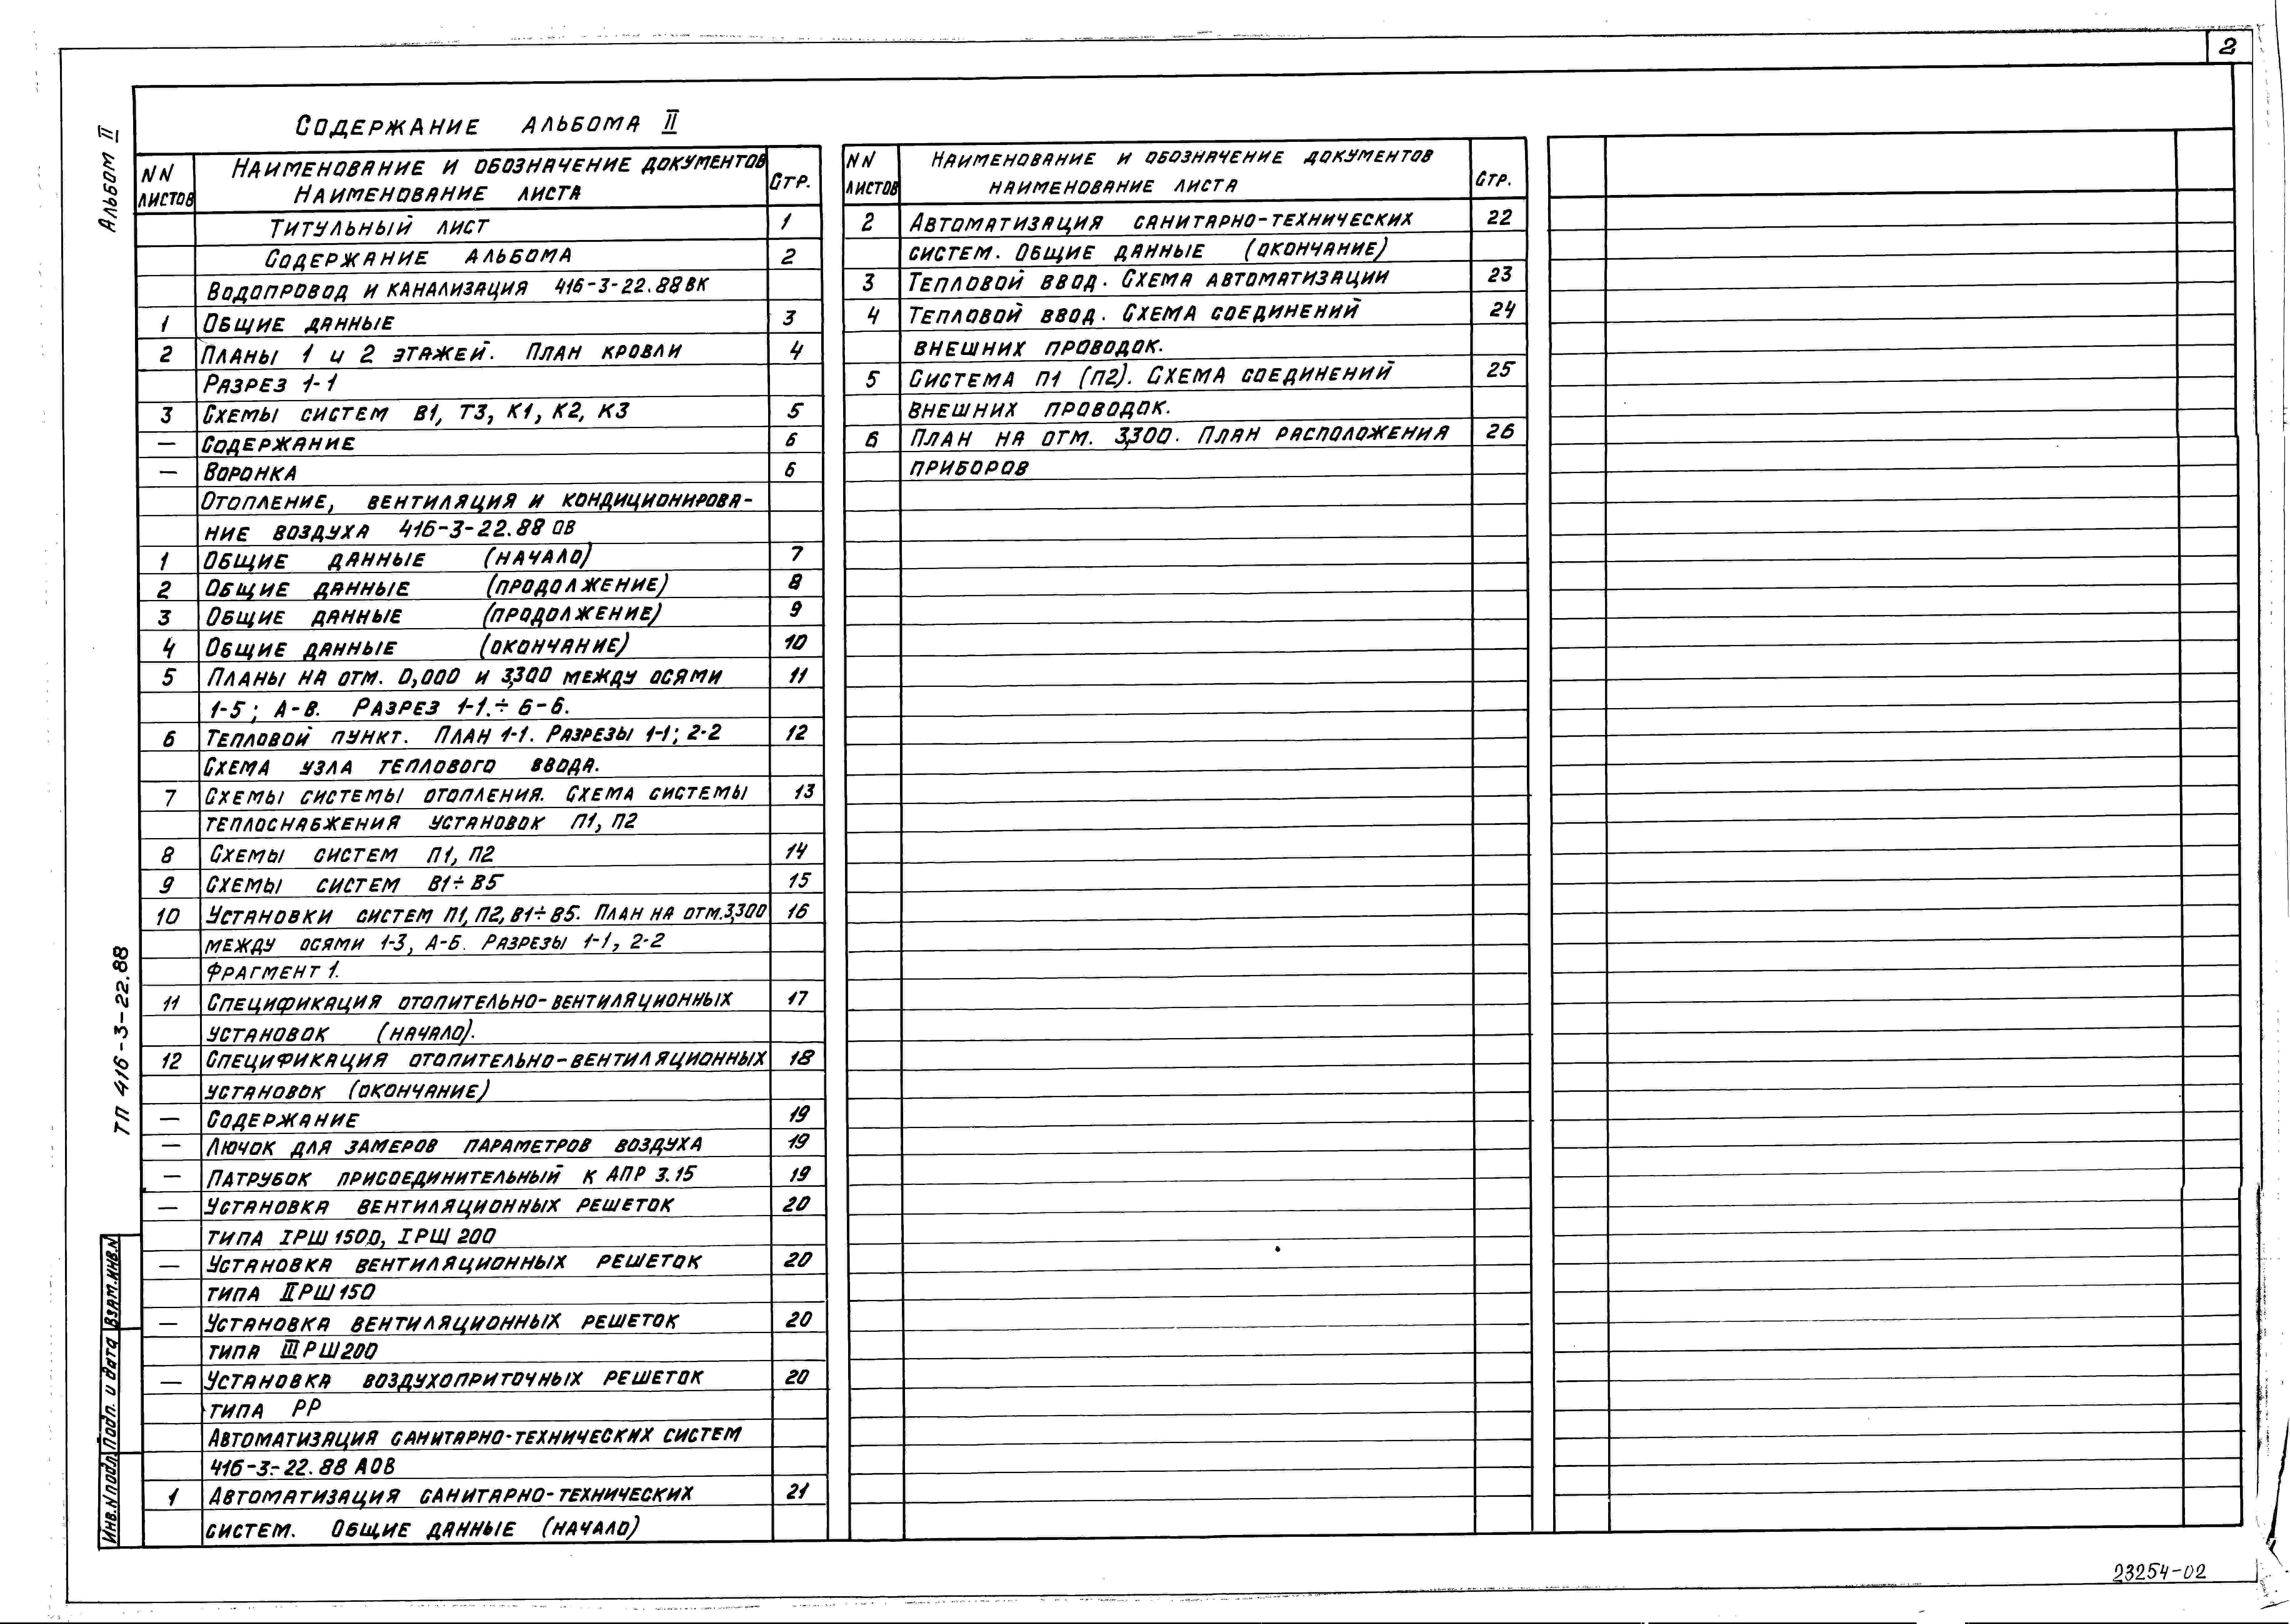 2
Альбом II
Содержание альбома II
NN листов
Наименование и обозначение документов
Наименование листа
Стр.
Титульный лист 1
Содержание альбома 2
Водопровод и канализация 416-3-22.88 ВК
1 Общие данные 3
2 Планы 1 и 2 этажей. План кровли 4
Разрез 1-1
3 Схемы систем В1, Т3, К1, К2, К3 5
— Содержание 6
— Воронка 6
Отопление, вентиляция и кондиционирова-
ние воздуха 416-3-22.88 ОВ
1 Общие данные (начало) 7
2 Общие данные (продолжение) 8
3 Общие данные (продолжение) 9
4 Общие данные (окончание) 10
5 Планы на отм. 0,000 и 3,300 между осями 11
1-5; А-В. Разрез 1-1.÷6-6.
6 Тепловой пункт. План 1-1. Разрезы 1-1; 2-2 12
Схема узла теплового ввода.
7 Схемы системы отопления. Схема системы 13
теплоснабжения установок П1, П2
8 Схемы систем П1, П2 14
9 Схемы систем В1÷В5 15
10 Установки систем П1, П2, В1÷В5. План на отм. 3,300 16
между осями 1-3, А-Б. Разрезы 1-1, 2-2
Фрагмент 1.
11 Спецификация отопительно-вентиляционных 17
установок (начало).
12 Спецификация отопительно-вентиляционных 18
установок (окончание)
— Содержание 19
— Лючок для замеров параметров воздуха 19
— Патрубок присоединительный к АПР 3.15 19
— Установка вентиляционных решеток 20
типа IРШ 150Д, IРЩ 200
— Установка вентиляционных решеток 20
типа IIРШ 150
— Установка вентиляционных решеток 20
типа IIIРШ200
— Установка воздухоприточных решеток 20
типа РР
Автоматизация санитарно-технических систем
416-3-22.88 АОВ
1 Автоматизация санитарно-технических 21
систем. Общие данные (начало)
NN листов
Наименование и обозначение документов
наименование листа
Стр.
2 Автоматизация санитарно-технических 22
систем. Общие данные (окончание)
3 Тепловой ввод. Схема автоматизации 23
4 Тепловой ввод. Схема соединений 24
внешних проводок.
5 Система П1 (П2). Схема соединений 25
внешних проводок.
6 План на отм. 3,300. План расположения 26
приборов
ТП 416-3-22.88
Взам.инв.N
Подп. и дата
Инв.N подл.
23254-02